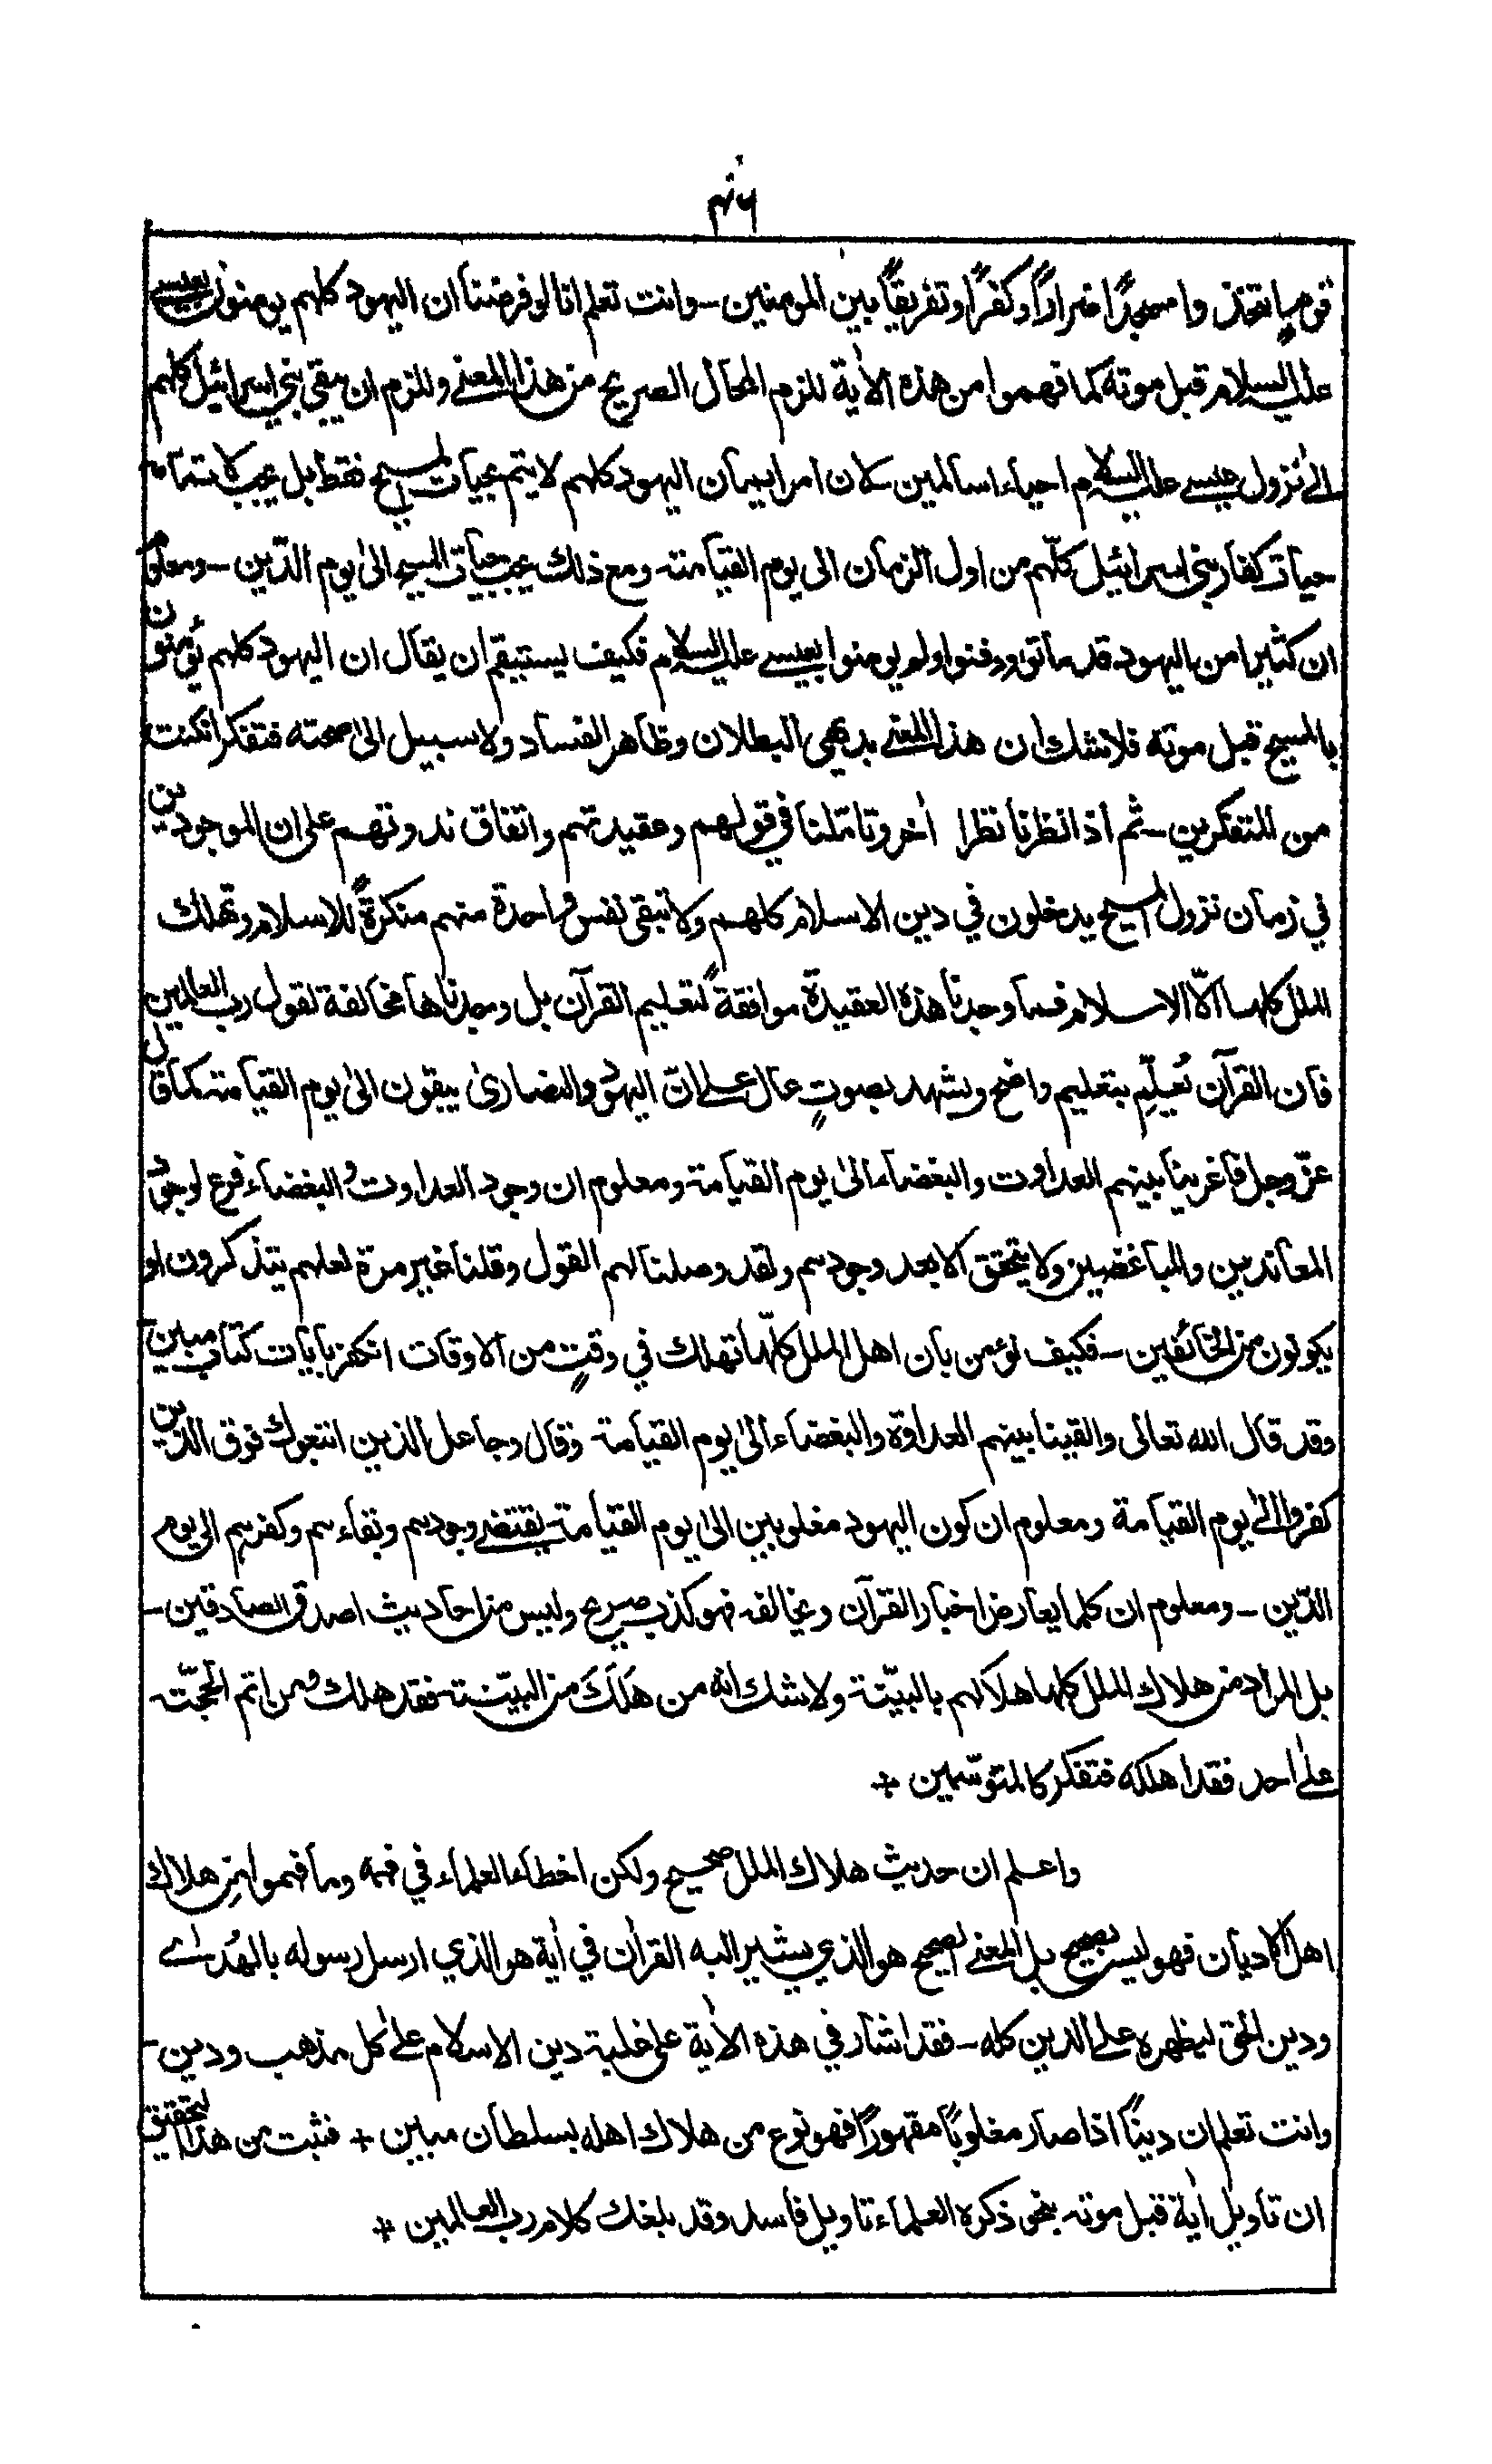 ۴۶
قوم اتخذوا مسجدًا ضرارًا وكفرًا وتفريقًا بين المومنين ـ وانت تعلم انا لو فرضنا ان اليهود كلهم يومنون بعيسى
عليه السلام قبل موته كما فهموا من هذه الاٰية للزم المحال الصريح من هذا المعنى وللزم ان يبقى بني اسرائيل كلهم
الى نزول عيسى عليه السلام احياء سالمين لان امر ايمان اليهود كلهم لا يتم بحيات المسيح فقط بل يجب لاتمامه
حيات كفار بني اسرائيل كلّهم من اول الزمان الى يوم القيامة ومع ذلك يجب حيات المسيح الى يوم الدّين ـ ومعلوم
ان كثيرا من اليهود قد ماتوا ودفنوا ولم يومنوا بعيسى عليه السلام فكيف يستقيم ان يقال ان اليهود كلهم يؤمنون
بالمسيح قبل موته فلا شك ان هذا المعنى بديهي البطلان وظاهر الفساد ولا سبيل الى صحته فتفكر ان كنت
من المتفكرين ـ ثم اذا نظرنا نظرا اٰخر وتاملنا في قولهم وعقيدتهم واتفاق ندوتهم على ان الموجودين
في زمان نزول المسيح يدخلون في دين الاسلام كلهم ولا تبقى نفس واحدة منهم منكرةً للاسلام وتهلك
الملل كلها الّا الاسلام فما وجدنا هذه العقيدة موافقةً لتعليم القرآن بل وجدناها مخالفة لقول رب العالمين
فان القرآن يُعلِّم بتعليم واضح ويشهد بصوتٍ عال على انّ اليهود والنصارى يبقون الى يوم القيامة كما قال
عزّ وجل فاغرينا بينهم العداوت والبغضاء الى يوم القيامة ومعلوم ان وجود العداوت والبغضاء فرع لوجود
المعاندين والمباغضين ولا يتحقق الا بعد وجودهم ولقد وصلنا لهم القول وقلنا غير مرة لعلهم يتذكرون او
يكونون من الخائفين ـ فكيف نؤمن بان اهل الملل كلّها تهلك في وقتٍ من الاوقات انكفر بايات كتاب مبين
وقد قال الله تعالى والقينا بينهم العداوة والبغضاء الى يوم القيامة وقال وجاعل الذين اتبعوك فوق الذين
كفروا الى يوم القيامة ومعلوم ان كون اليهود مغلوبين الى يوم القيامة يقتضى وجودهم وبقاءهم وكفرهم الى يوم
الدّين ـ ومعلوم ان كلما يعارض اخبار القرآن ويخالفه فهو كذب صريح وليس من احاديث اصدق الصادقين ـ
بل المراد من هلاك الملل كلها هلاكهم بالبيّنة ولا شك انه من هَلَكَ من البيّنة فقد هلك ومن اتم الحجّة
على احد فقد اهلكه فتفكر كالمتوسّمين +
واعلم ان حديث هلاك الملل صحيح ولكن اخطاء العلماء في فهمه وما فهموا من هلاك
اهل الاديان فهو ليس بصحيح بل المعنى الصحيح هو الذي يشير اليه القراٰن في اٰية هو الذي ارسل رسوله بالهُدٰى
ودين الحق ليظهره على الدين كله ـ فقد اشار في هذه الاٰية على غلبة دين الاسلام على كل مذهب ودين ـ
وانت تعلم ان دينًا اذا صار مغلوبًا مقهورًا فهو نوع من هلاك اهله بسلطان مبين + فثبت من هذا التحقيق
ان تاويل اٰية قبل موته بنحو ذكره العلماء تاويل فاسد وقد بلغك كلام رب العالمين +